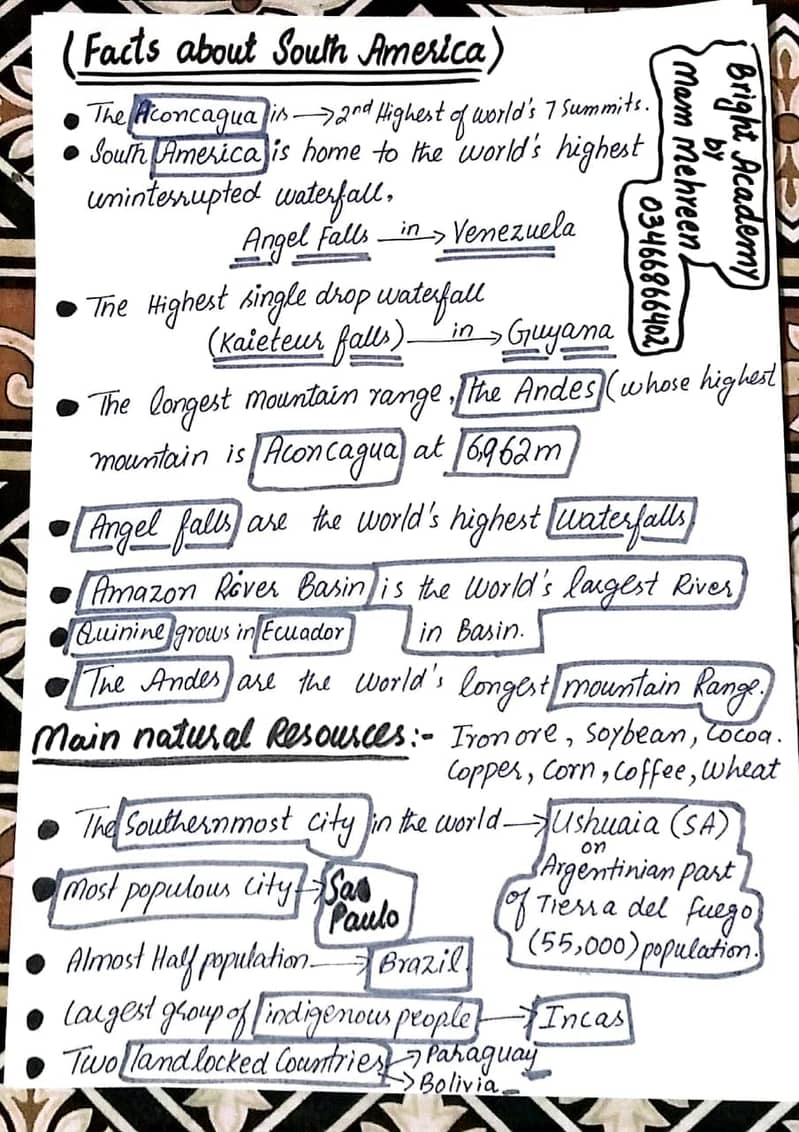 (Facts about South America)
Bright Academy
by
Mam Mehreen
03466866402
• The Aconcagua is → 2nd Highest of world's 7 Summits.
• South America is home to the world's highest
uninterrupted waterfall,
Angel Falls in → Venezuela
• The Highest single drop waterfall
(Kaieteur falls) in → Guyana
• The longest mountain range, the Andes (whose highest
mountain is Aconcagua at 6,962m
• Angel falls are the world's highest waterfalls
• Amazon River Basin is the world's largest River
in Basin.
• Quinine grows in Ecuador
• The Andes are the world's longest mountain Range.
Main natural Resources:- Iron ore, Soybean, Cocoa.
Copper, Corn, Coffee, Wheat
• The Southernmost city in the world → Ushuaia (SA)
on
Argentinian part
of Tierra del fuego
(55,000) population.
• Most populous city → Sao
Paulo
• Almost Half population → Brazil
• Largest group of indigenous people → Incas
• Two landlocked Countries → Paraguay
→ Bolivia